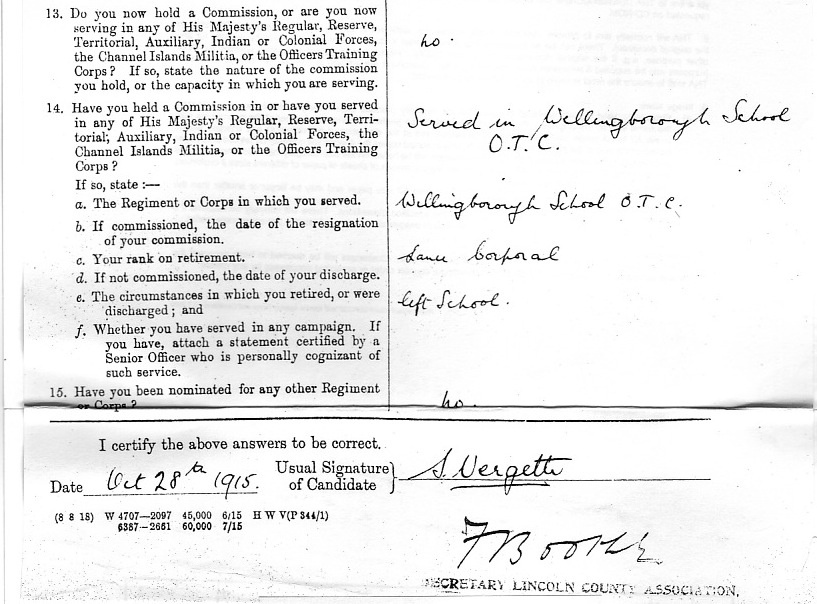 13. Do you now hold a Commission, or are you now
serving in any of His Majesty's Regular, Reserve,
Territorial, Auxiliary, Indian or Colonial Forces,
the Channel Islands Militia, or the Officers Training
Corps? If so, state the nature of the commission
you hold, or the capacity in which you are serving.
no.
14. Have you held a Commission in or have you served
in any of His Majesty's Regular, Reserve, Terri-
torial, Auxiliary, Indian or Colonial Forces, the
Channel Islands Militia, or the Officers Training
Corps?
Served in Wellingborough School
O.T.C.
If so, state :—
a. The Regiment or Corps in which you served.
Wellingborough School O.T.C.
b. If commissioned, the date of the resignation
of your commission.
c. Your rank on retirement.
Lance Corporal
d. If not commissioned, the date of your discharge.
e. The circumstances in which you retired, or were
discharged; and
left School.
f. Whether you have served in any campaign. If
you have, attach a statement certified by a
Senior Officer who is personally cognizant of
such service.
15. Have you been nominated for any other Regiment
or Corps?
no.
I certify the above answers to be correct.
Date Oct 28th 1915.
Usual Signature
of Candidate } S. Vergette
(8 8 18) W 4707—2097 45,000 6/15 H W V(P 344/1)
6387—2661 60,000 7/15
SECRETARY LINCOLN COUNTY ASSOCIATION.